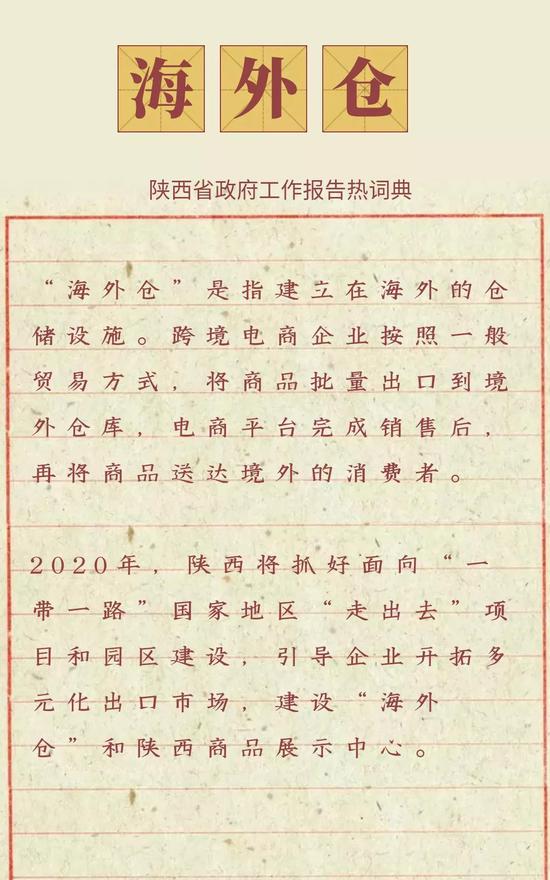 海外仓
陕西省政府工作报告热词典
“海外仓”是指建立在海外的仓
储设施。跨境电商企业按照一般
贸易方式，将商品批量出口到境
外仓库，电商平台完成销售后，
再将商品送达境外的消费者。
2020年，陕西将抓好面向“一
带一路”国家地区“走出去”项
目和园区建设，引导企业开拓多
元化出口市场，建设“海外
仓”和陕西商品展示中心。